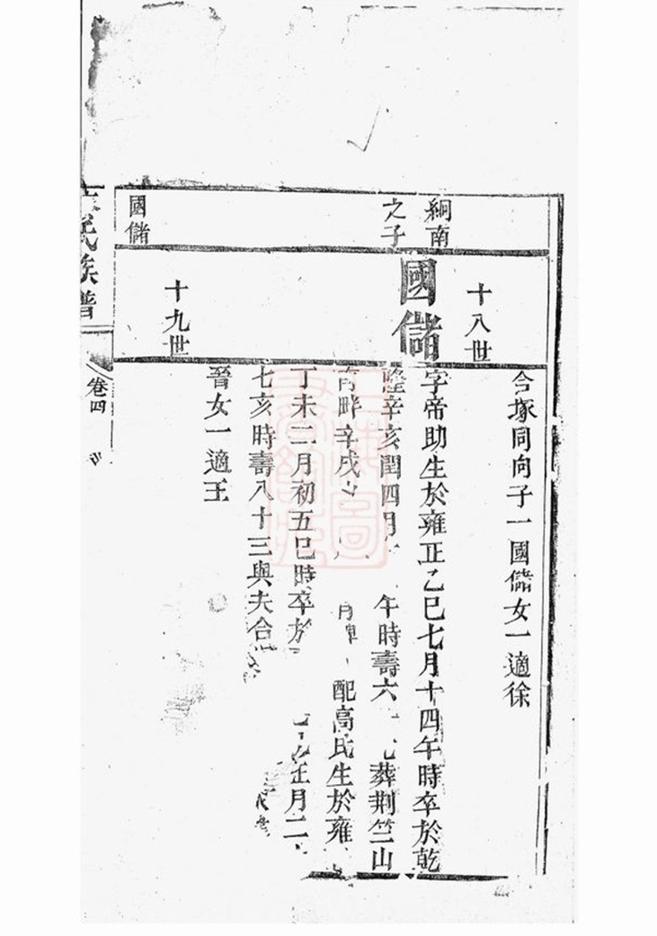 合塚同向子一國儲女一適徐
十八世
絅南
之子
國儲
字帝助生於雍正乙巳七月十四午時卒於乾
隆辛亥閏四月
午時壽六
葬荆竺山
南畔辛戌
配高氏生於雍
丁未二月初五巳時卒於
正月二
七亥時壽八十三與夫合
晉女一適王
十九世
國儲
氏族譜
卷四